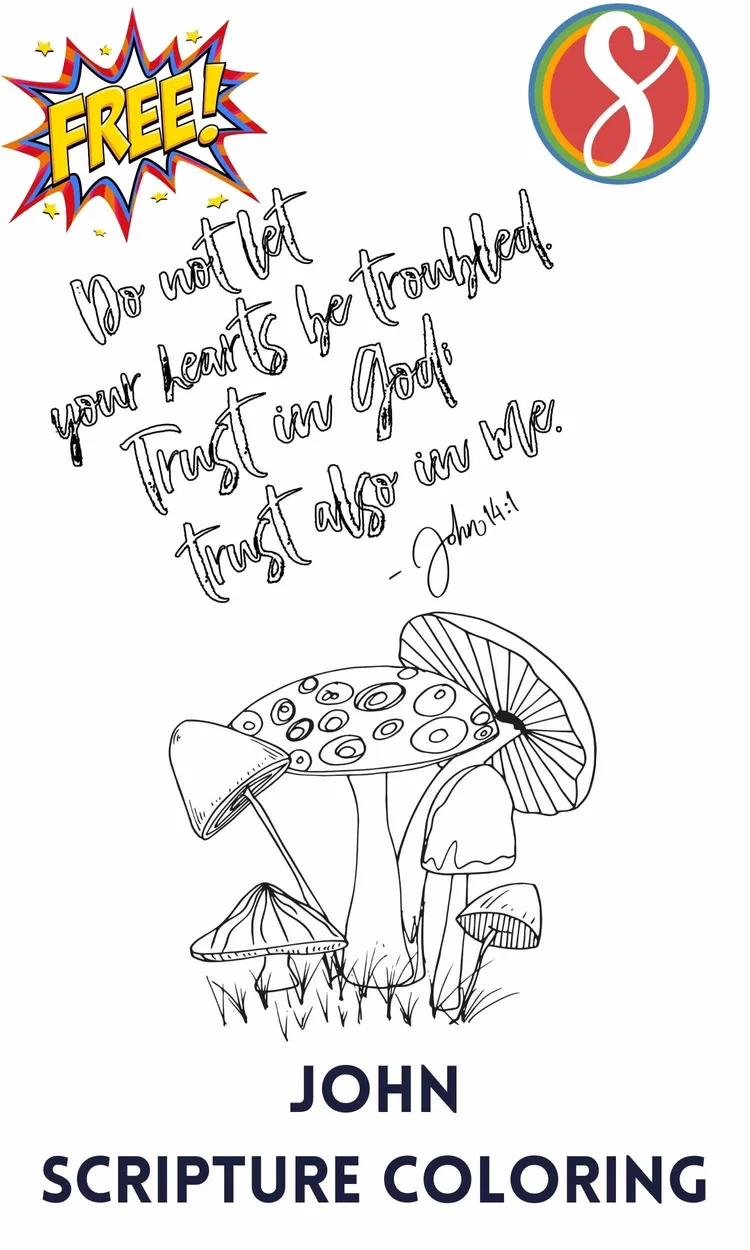 FREE!
S
Do not let
your hearts be troubled.
Trust in God;
trust also in me.
- John 14:1
JOHN
SCRIPTURE COLORING